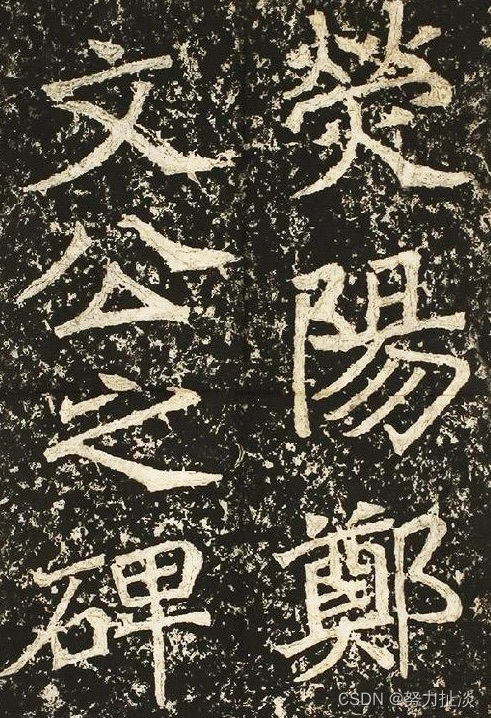 熒陽鄭
文公之碑
CSDN @努力扯淡